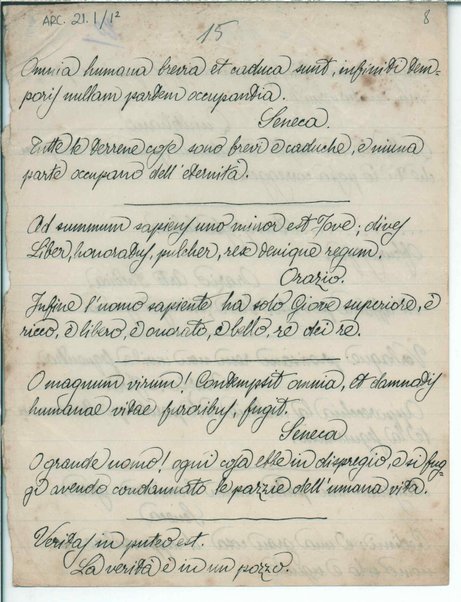 ARC. 21.1/1²
8
15
Omnia humana brevia et caduca sunt, infiniti tem-
poris nullam partem occupantia.
Seneca.
Tutte le terrene cose sono brevi e caduche, e niuna
parte occupano dell'eternità.
Ad summum sapiens uno minor est Jove; dives
Liber, honoratus, pulcher, rex denique regum.
Orazio.
Infine l'uomo sapiente ha solo Giove superiore, è
ricco, è libero, è onorato, è bello, re dei re.
O magnum virum! Contempsit omnia, et damnatis
humanae vitae furoribus, fugit.
Seneca
O grande uomo! ogni cosa ebbe in dispregio, e si fug-
gì avendo condannato le pazzie dell'umana vita.
Veritas in puteo est.
La verità è in un pozzo.